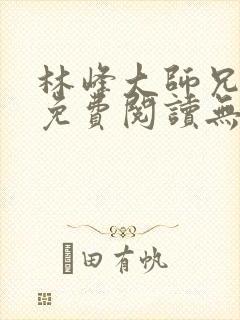 林峰大師兄
免費閱讀無
田有帆